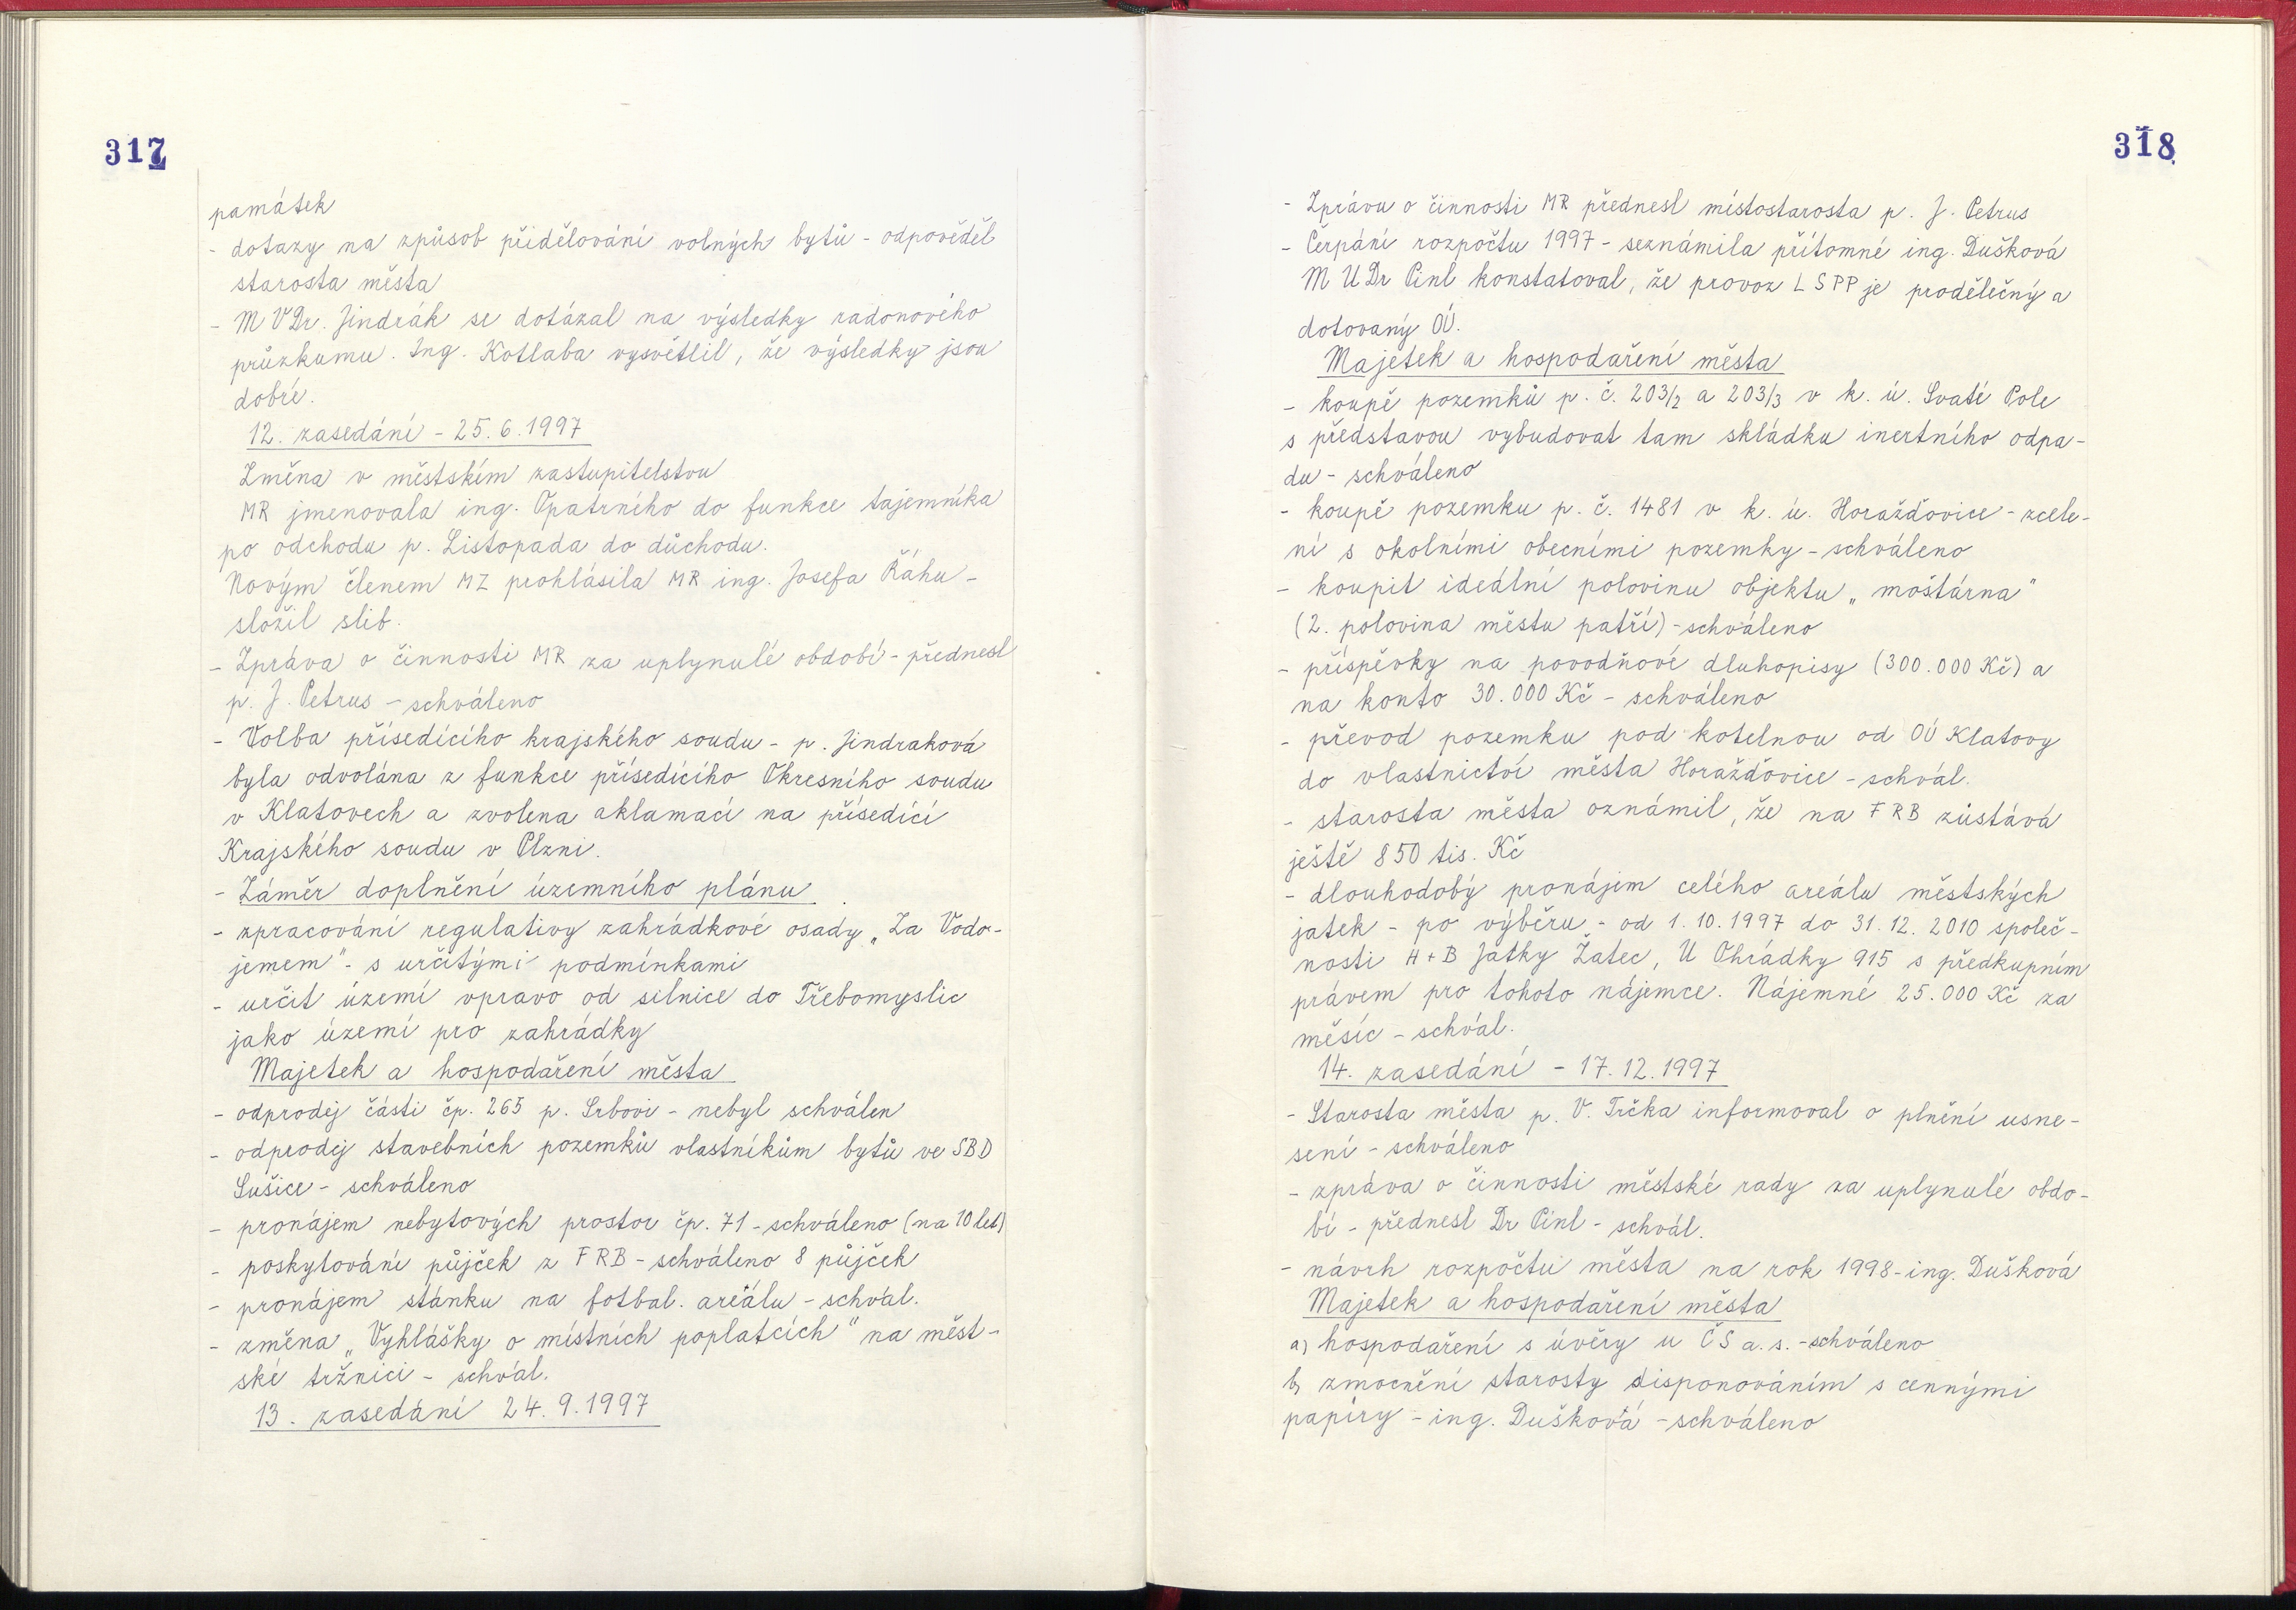 317
památek
- dotazy na způsob přidělování volných bytů - odpověděl
starosta města
- MVDr. Jindrák se dotázal na výsledky radonového
průzkumu. Ing. Kotlaba vysvětlil, že výsledky jsou
dobré.
12. zasedání - 25.6.1997
Změna v městském zastupitelstvu
MR jmenovala ing. Opatrního do funkce tajemníka
po odchodu p. Listopada do důchodu.
Novým členem MZ prohlásila MR ing. Josefa Řáhu -
složil slib.
- Zpráva o činnosti MR za uplynulé období - přednesl
p. J. Petrus - schváleno
- Volba přísedícího krajského soudu - p. Jindraková
byla odvolána z funkce přísedícího Okresního soudu
v Klatovech a zvolena aklamací na přísedící
Krajského soudu v Plzni.
- Záměr doplnění územního plánu
- zpracování regulativy zahrádkové osady „Za Vodo-
jemem" - s určitými podmínkami
- určit území vpravo od silnice do Třebomyslic
jako území pro zahrádky
Majetek a hospodaření města
- odprodej části čp. 265 p. Srbovi - nebyl schválen
- odprodej stavebních pozemků vlastníkům bytů ve SBD
Sušice - schváleno
- pronájem nebytových prostor čp. 71 - schváleno (na 10 let)
- poskytování půjček z FRB - schváleno 8 půjček
- pronájem stánku na fotbal. areálu - schvál.
- změna „Vyhlášky o místních poplatcích" na měst-
ské tržnici - schvál.
13. zasedání 24.9.1997
318
- Zprávu o činnosti MR přednesl místostarosta p. J. Petrus
- Čerpání rozpočtu 1997 - seznámila přítomné ing. Dušková
MUDr Pinl konstatoval, že provoz LSPP je prodělečný a
dotovaný OÚ.
Majetek a hospodaření města
- koupě pozemků p. č. 203/2 a 203/3 v k. ú. Svaté Pole
s představou vybudovat tam skládku inertního odpa-
du - schváleno
- koupě pozemku p. č. 1481 v k. ú. Horažďovice - zcele-
ní s okolními obecními pozemky - schváleno
- koupit ideální polovinu objektu „moštárna"
(2. polovina městu patří) - schváleno
- příspěvky na povodňové dluhopisy (300.000 Kč) a
na konto 30.000 Kč - schváleno
- převod pozemku pod kotelnou od OÚ Klatovy
do vlastnictví města Horažďovice - schvál.
- starosta města oznámil, že na FRB zůstává
ještě 850 tis. Kč
- dlouhodobý pronájem celého areálu městských
jatek - po výběru - od 1.10.1997 do 31.12.2010 společ-
nosti H+B Jatky Žatec, U Ohrádky 915 s předkupním
právem pro tohoto nájemce. Nájemné 25.000 Kč za
měsíc - schvál.
14. zasedání - 17.12.1997
- Starosta města p. V. Trčka informoval o plnění usne-
sení - schváleno
- zpráva o činnosti městské rady za uplynulé obdo-
bí - přednesl Dr Pinl - schvál.
- návrh rozpočtu města na rok 1998 - ing. Dušková
Majetek a hospodaření města
a) hospodaření s úvěry u ČS a.s. - schváleno
b) zmocnění starosty disponováním s cennými
papíry - ing. Dušková - schváleno